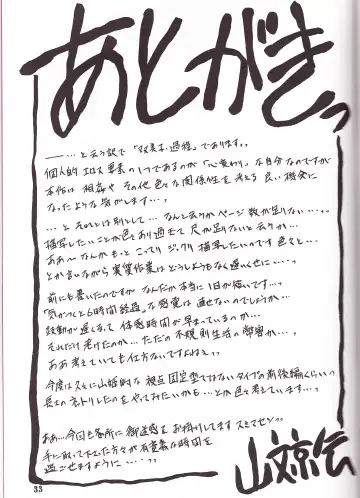 あとがきっ
――…と云う訳で「双美子過程」であります。
個人的エロス要素の1つであるのが「心変わり」な自分なのですが
本作は相姦やその他色々な関係性を考える良い機会に
なったような気がします…。
…とそれとは別として…なんと云うかページ数が足りない…。
描写したいことが色々あり過ぎて尺が足りないと云うか…
ああ〜なんかもっとこってりジックリ描写したいのです色々と…
とか言いながら実質作業はどうしようもなく遅いくせに…。
前にも書いたのですがなんだか本当に1日が短いです…。
「気がつくと6時間経過」な感覚は直せないのでしょうか…
鼓動が遅くなって体感時間が早まっているのか…
それだけ老けたのか…ただの不規則生活の弊害か…。
ああ考えていても仕方ないですよねぇ。
今度はスミに山姫的な視点固定型ではないタイプの前後編くらいの
長さのネトリしたのをやってみたいかも…とか色々考えています…。
ああ…今回も各所に御迷惑をお掛けしてますスミマセンッ
手に取って下さった方々が有意義な時間を
過ごせますように…。
山文京伝
33